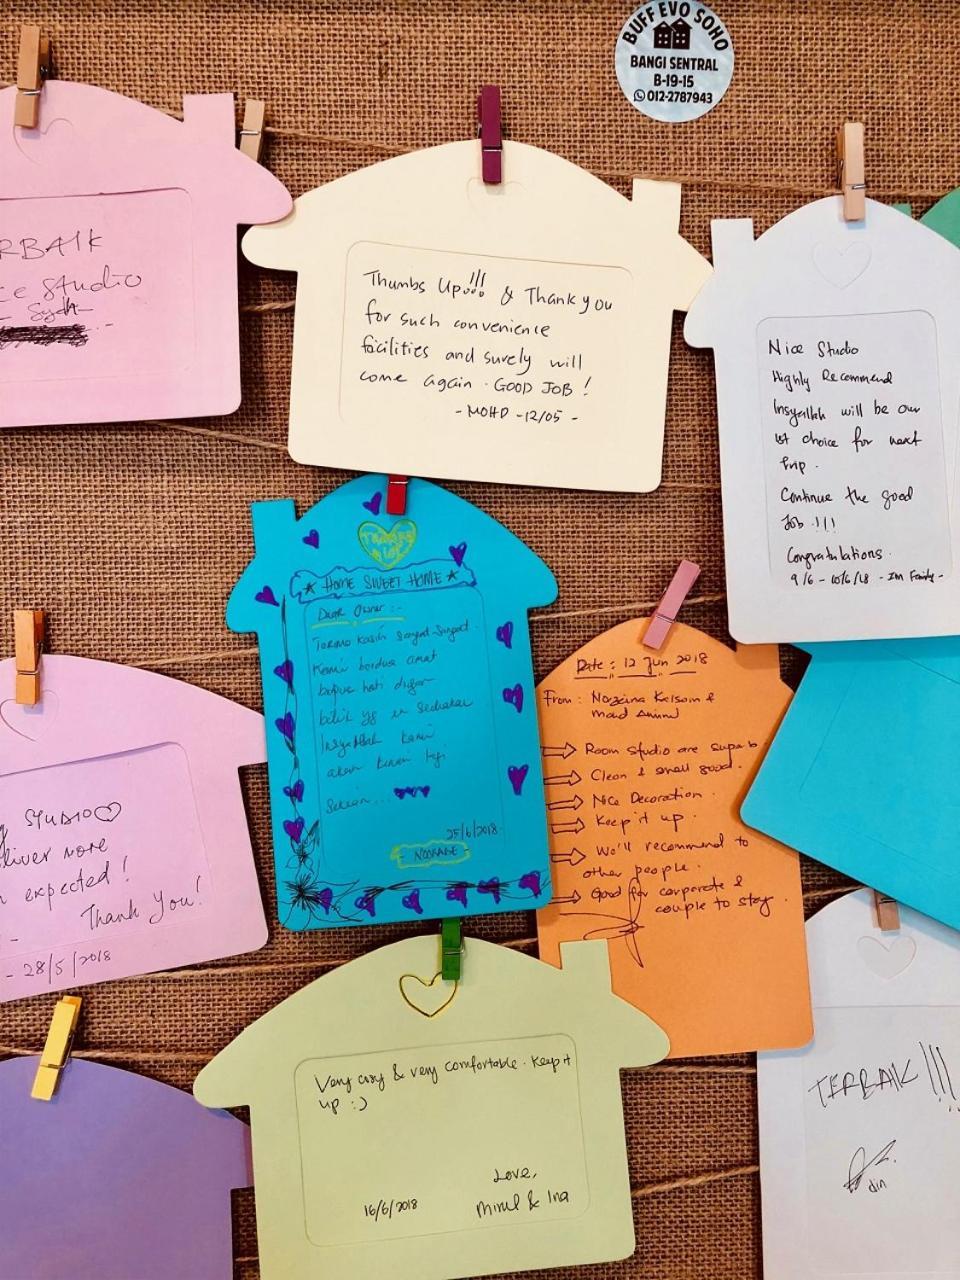 BUFF EVO SOHO
BANGI SENTRAL
B-19-15
012-2787943
RBAIK
ce studio
Thumbs Up!!! & Thank you
for such convenience
facilities and surely will
come again. GOOD JOB!
- MOHD - 12/05 -
Nice Studio
Highly Recommend
Insyallah will be our
1st choice for next
trip.
Continue the good
Job !!!
Congratulations.
9/6 - 10/6/18 - Im Family -
THANKS
A LOT
★ HOME SWEET HOME ★
Dear Owner :-
Terima Kasih Sangat-Sangat
Kami berdua amat
berpuas hati dengan
bilik yg di sediakan
Insyallah kami
akan kemari lagi
Sekian...
25/6/2018
Date : 12 Jun 2018
From : Norzina Kelsom &
Mohd Aminul
Room studio are superb
Clean & smell good.
Nice Decoration.
Keep it up.
We'll recommend to
other people.
Good for corporate &
couple to stay.
STUDIO
liver more
n expected!
Thank You!
- 28/5/2018
Very cosy & very comfortable. Keep it
up :)
Love,
16/6/2018 Mirul & Ina
TERBAIK !!!
din